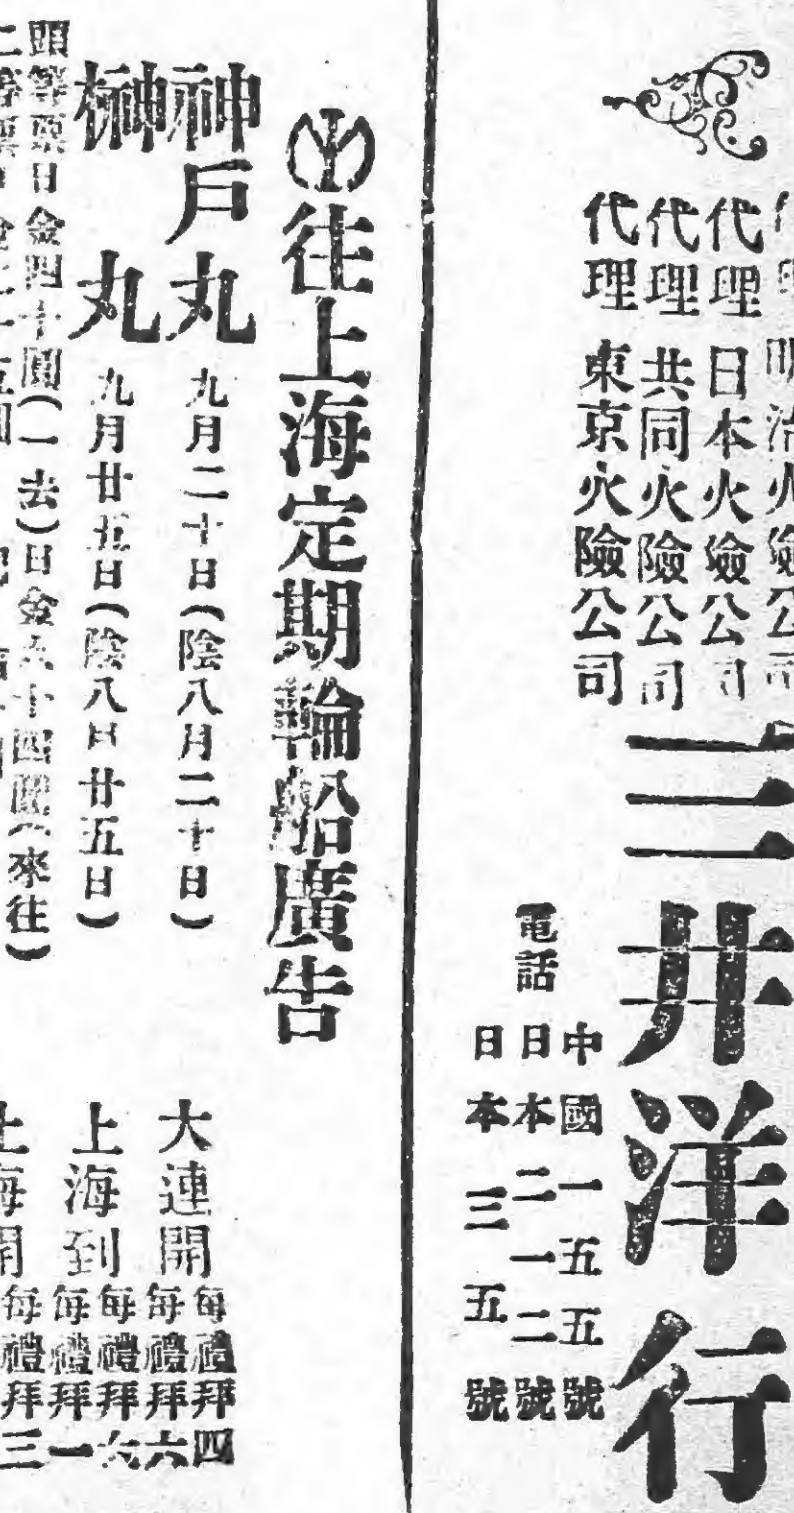 明治火險公司
代理 日本火險公司
代理 共同火險公司
代理 東京火險公司
三井洋行
電話
中國一五五號
日本二一二號
日本三五號
往上海定期輪船廣告
神戶丸 九月二十日(陰八月二十日)
榊丸 九月廿五日(陰八月廿五日)
頭等票日金四十圓(一去)日金六十四圓(來往)
大連開
每禮拜四
每禮拜六
上海到
每禮拜六
每禮拜一
上海開
每禮拜三